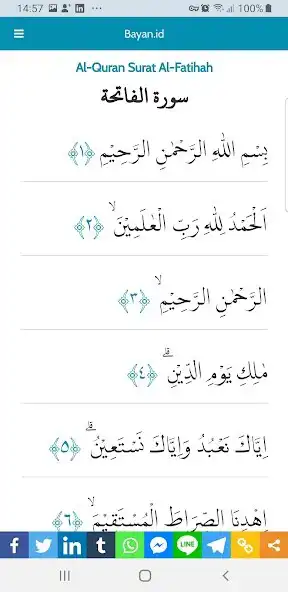 14:57 100%
Bayan.id
Al-Quran Surat Al-Fatihah
سورة الفاتحة
بِسْمِ اللّٰهِ الرَّحْمٰنِ الرَّحِيْمِ ﴿١﴾
اَلْحَمْدُ لِلّٰهِ رَبِّ الْعٰلَمِيْنَۙ ﴿٢﴾
الرَّحْمٰنِ الرَّحِيْمِۙ ﴿٣﴾
مٰلِكِ يَوْمِ الدِّيْنِۗ ﴿٤﴾
اِيَّاكَ نَعْبُدُ وَاِيَّاكَ نَسْتَعِيْنُۗ ﴿٥﴾
اِهْدِنَا الصِّرَاطَ الْمُسْتَقِيْمَۙ ﴿٦﴾
LINE